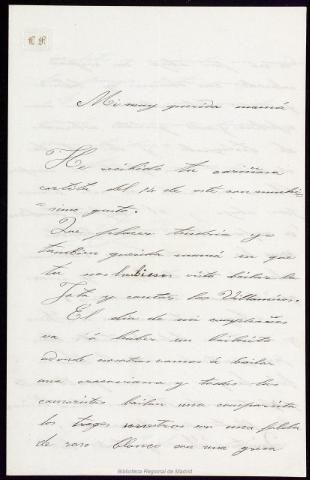 Mi muy querida mamá
He recibido tu cariñosa
cartita del 14 de este con muchi-
simo gusto.
Que placer tendria yo
tambien querida mamá en que
tu nos hubieses visto bailar la
Jota y cantar los Villancicos.
El dia de mi cumpleaños
va á haber un bailecito
adonde nosotros vamos á bailar
una cracoviana y todos los
convidados bailan una comparsita
los trajes nuestros son una falda
de raso blanco con una gran
Biblioteca Regional de Madrid